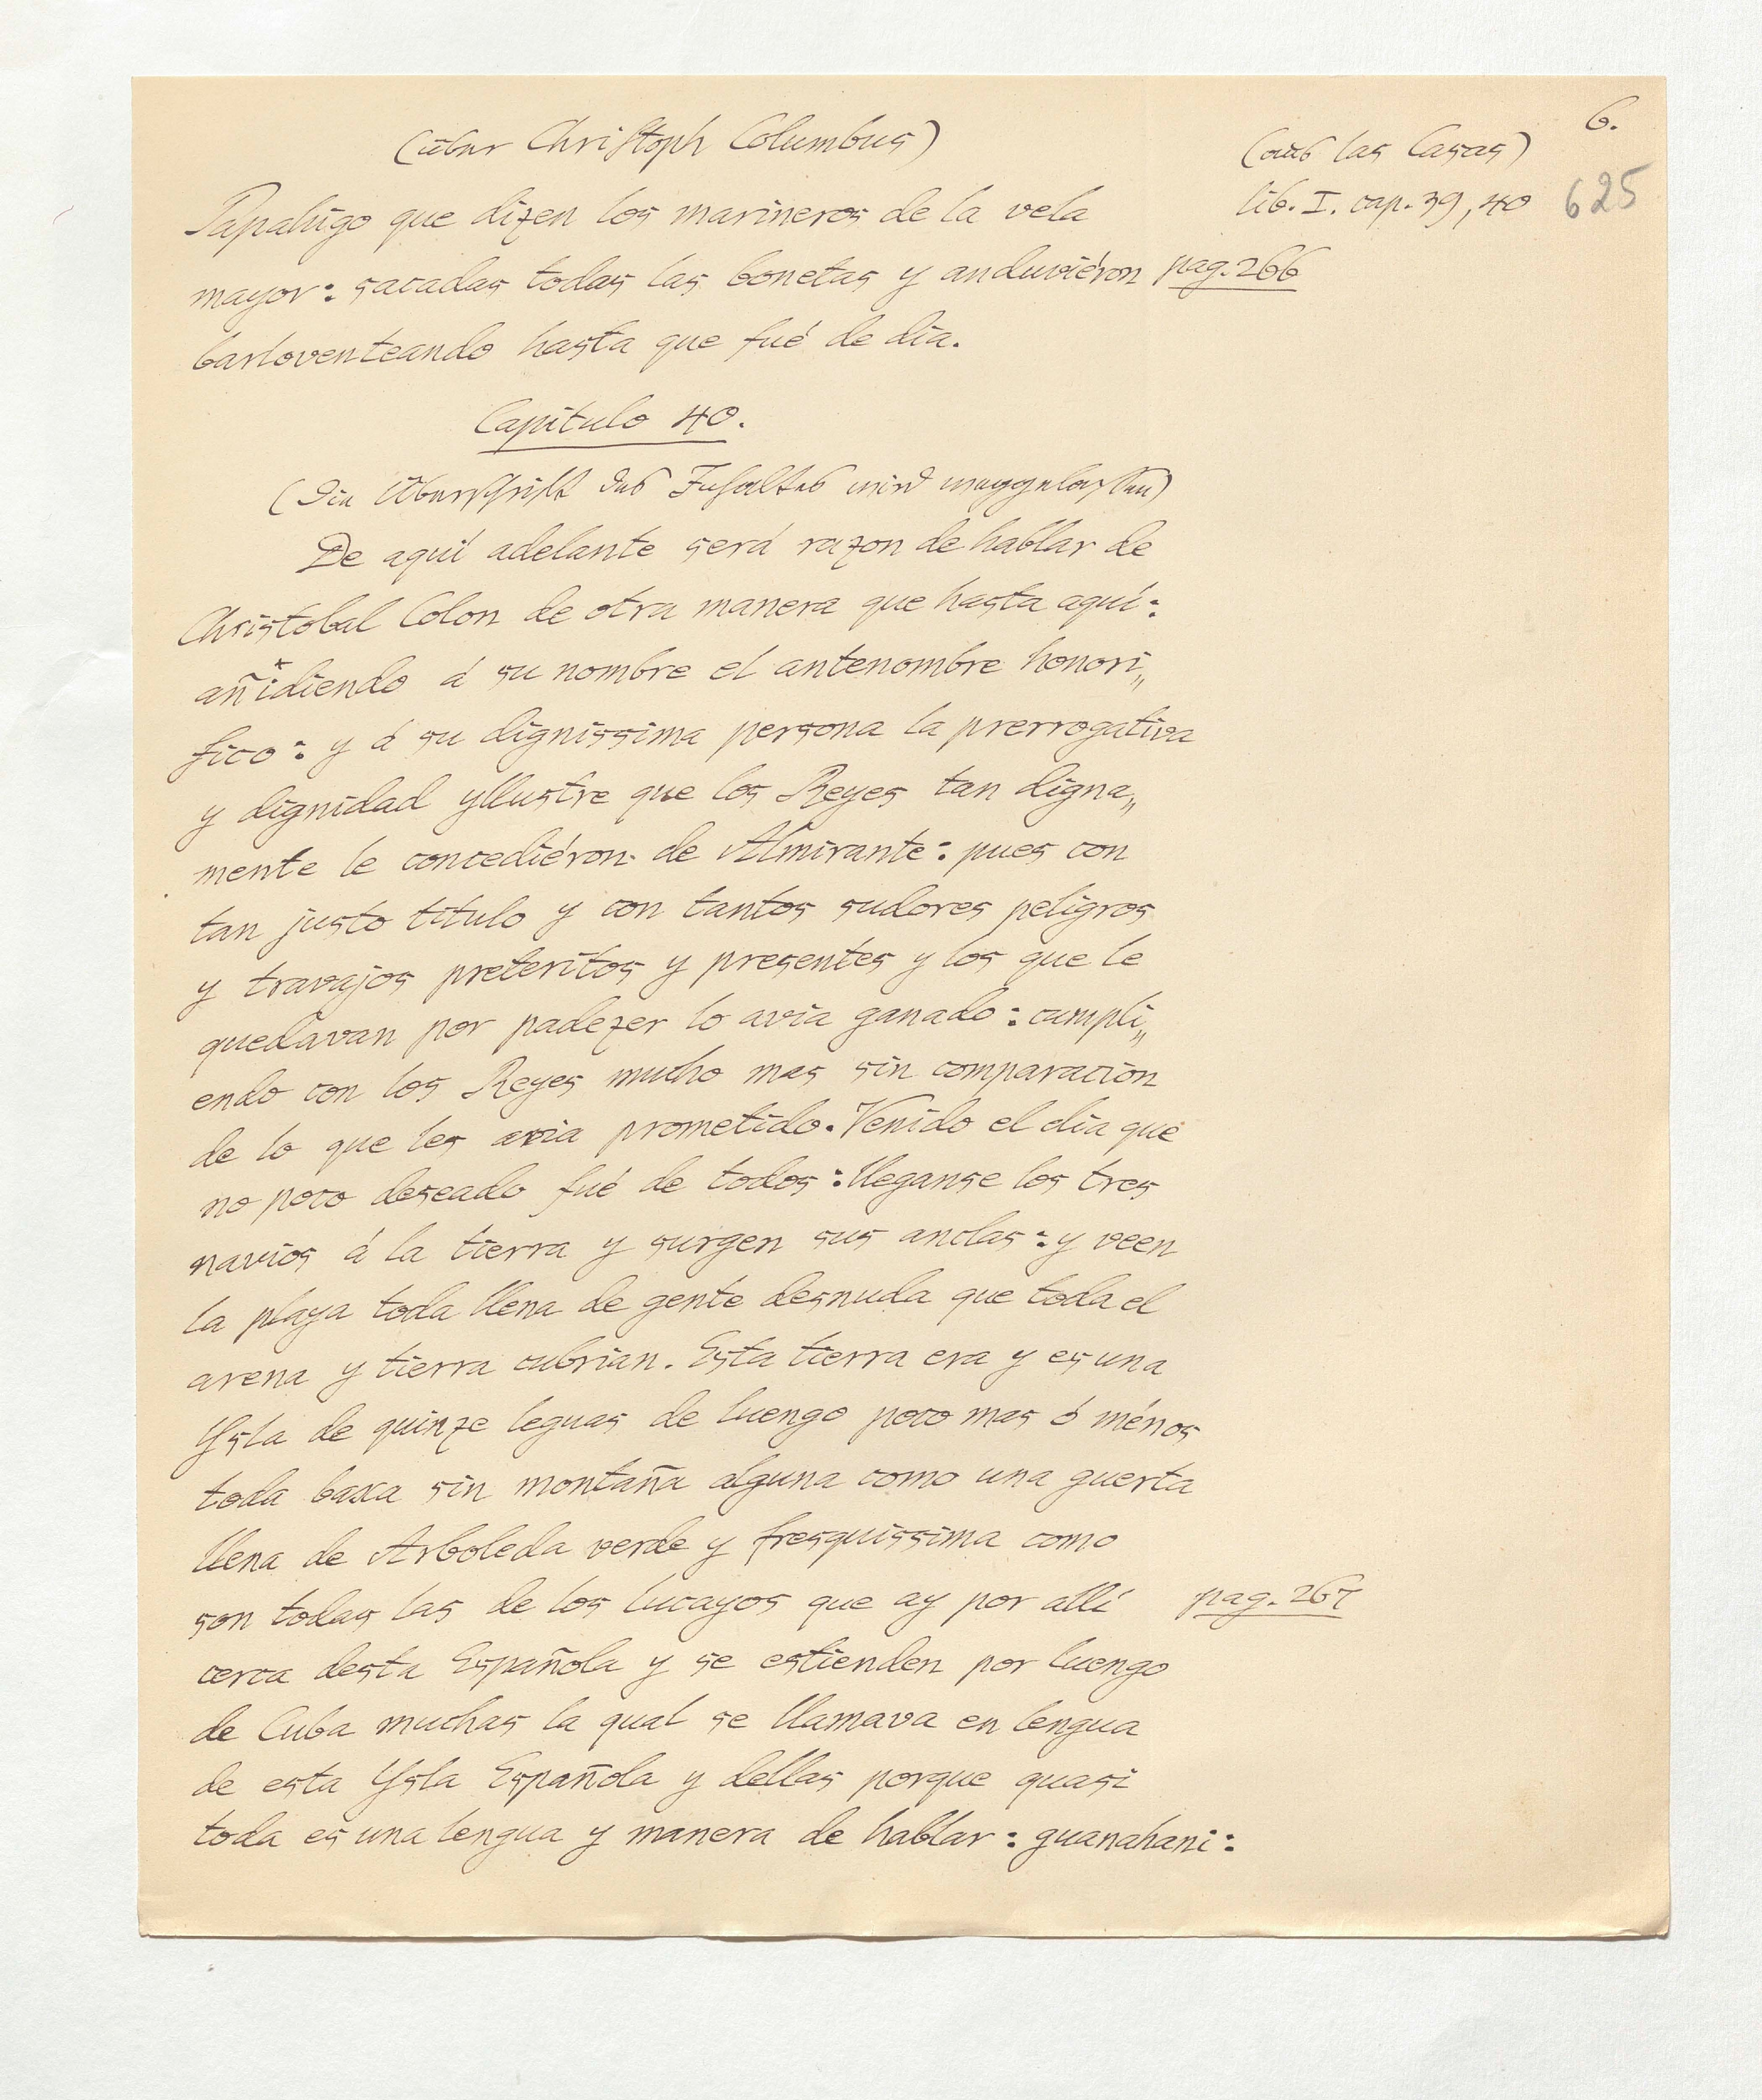 6.
(über Christoph Columbus)
(aus las Casas)
lib. I. cap. 39, 40
625
Papahigo que dizen los marineros de la vela
mayor: sacadas todas las bonetas y anduviéron pag. 266
barloventeando hasta que fué de dia.
Capitulo 40.
(Die Überschrift des Inhaltes wird weggelassen)
De aquí adelante será razon de hablar de
Christobal Colon de otra manera que hasta aquí:
añidiendo á su nombre el antenombre honori„
fico: y á su dignissima persona la prerrogativa
y dignidad yllustre que los Reyes tan digna„
mente le concediéron de Almirante: pues con
tan justo titulo y con tantos sudores peligros
y travajos preteritos y presentes y los que le
quedavan por padezer lo avia ganado: cumpli„
endo con los Reyes mucho mas sin comparacion
de lo que les avia prometido. Venido el dia que
no poco deseado fué de todos: lleganse los tres
navios á la tierra y surgen sus anclas: y veen
la playa toda llena de gente desnuda que toda el
arena y tierra cubrian. Esta tierra era y es una
Ysla de quinze leguas de luengo poco mas ó ménos
toda baxa sin montaña alguna como una guerta
llena de Arboleda verde y fresquissima como
son todas las de los lucayos que ay por allí pag. 267
cerca desta Española y se estienden por luengo
de Cuba muchas la qual se llamava en lengua
de esta Ysla Española y dellas porque quasi
toda es una lengua y manera de hablar: guanahani: